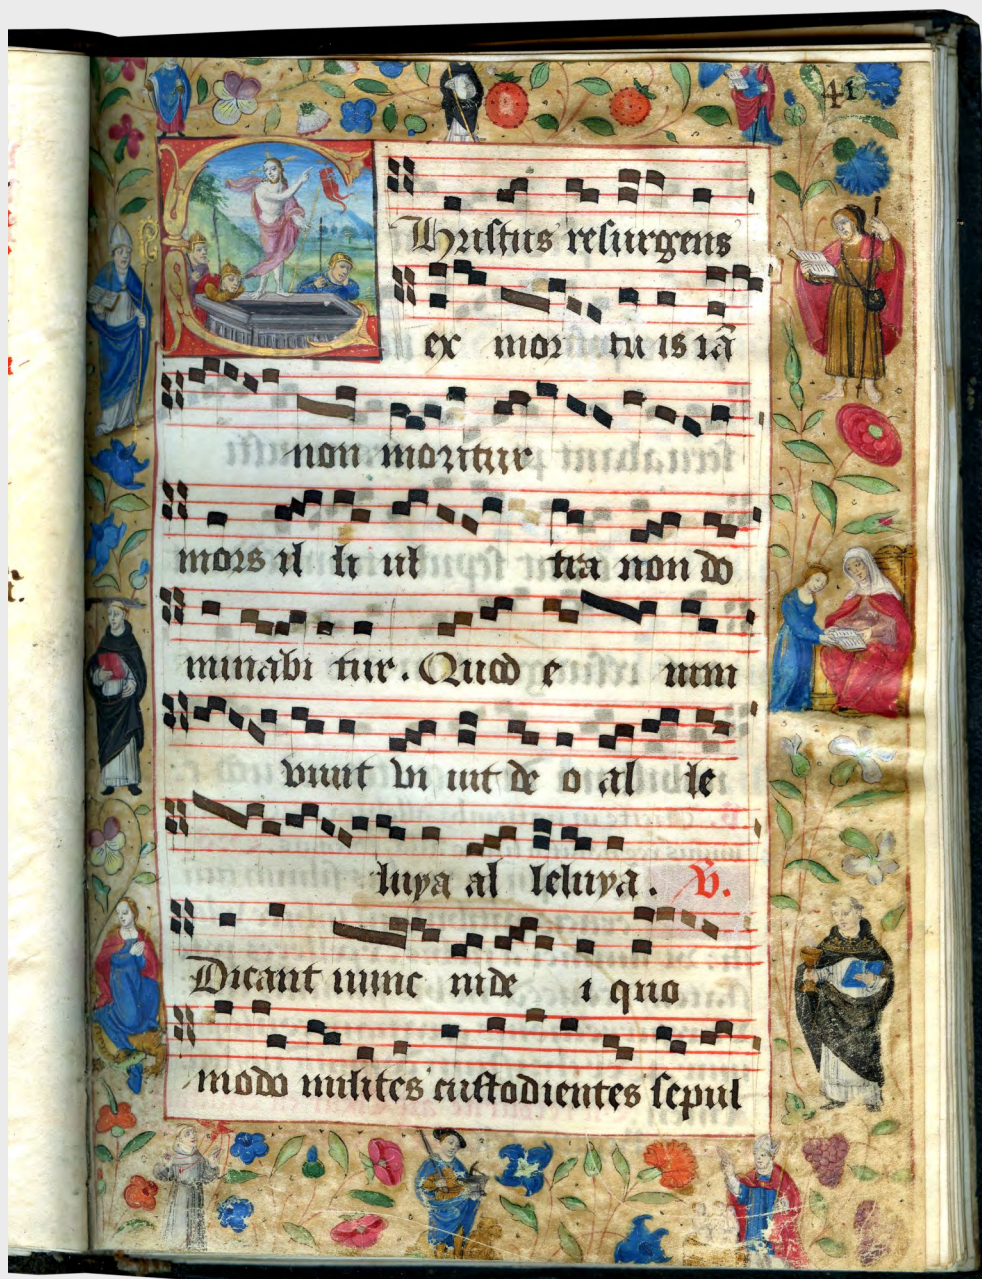 41
Christus resurgens
ex mor tu is iā
non moritur
mors il li ul tra non do
minabi tur. Quod e nim
viuit vi uit de o al le
luya al leluya. V.
Dicant nunc iude i quo
modo milites custodientes sepul